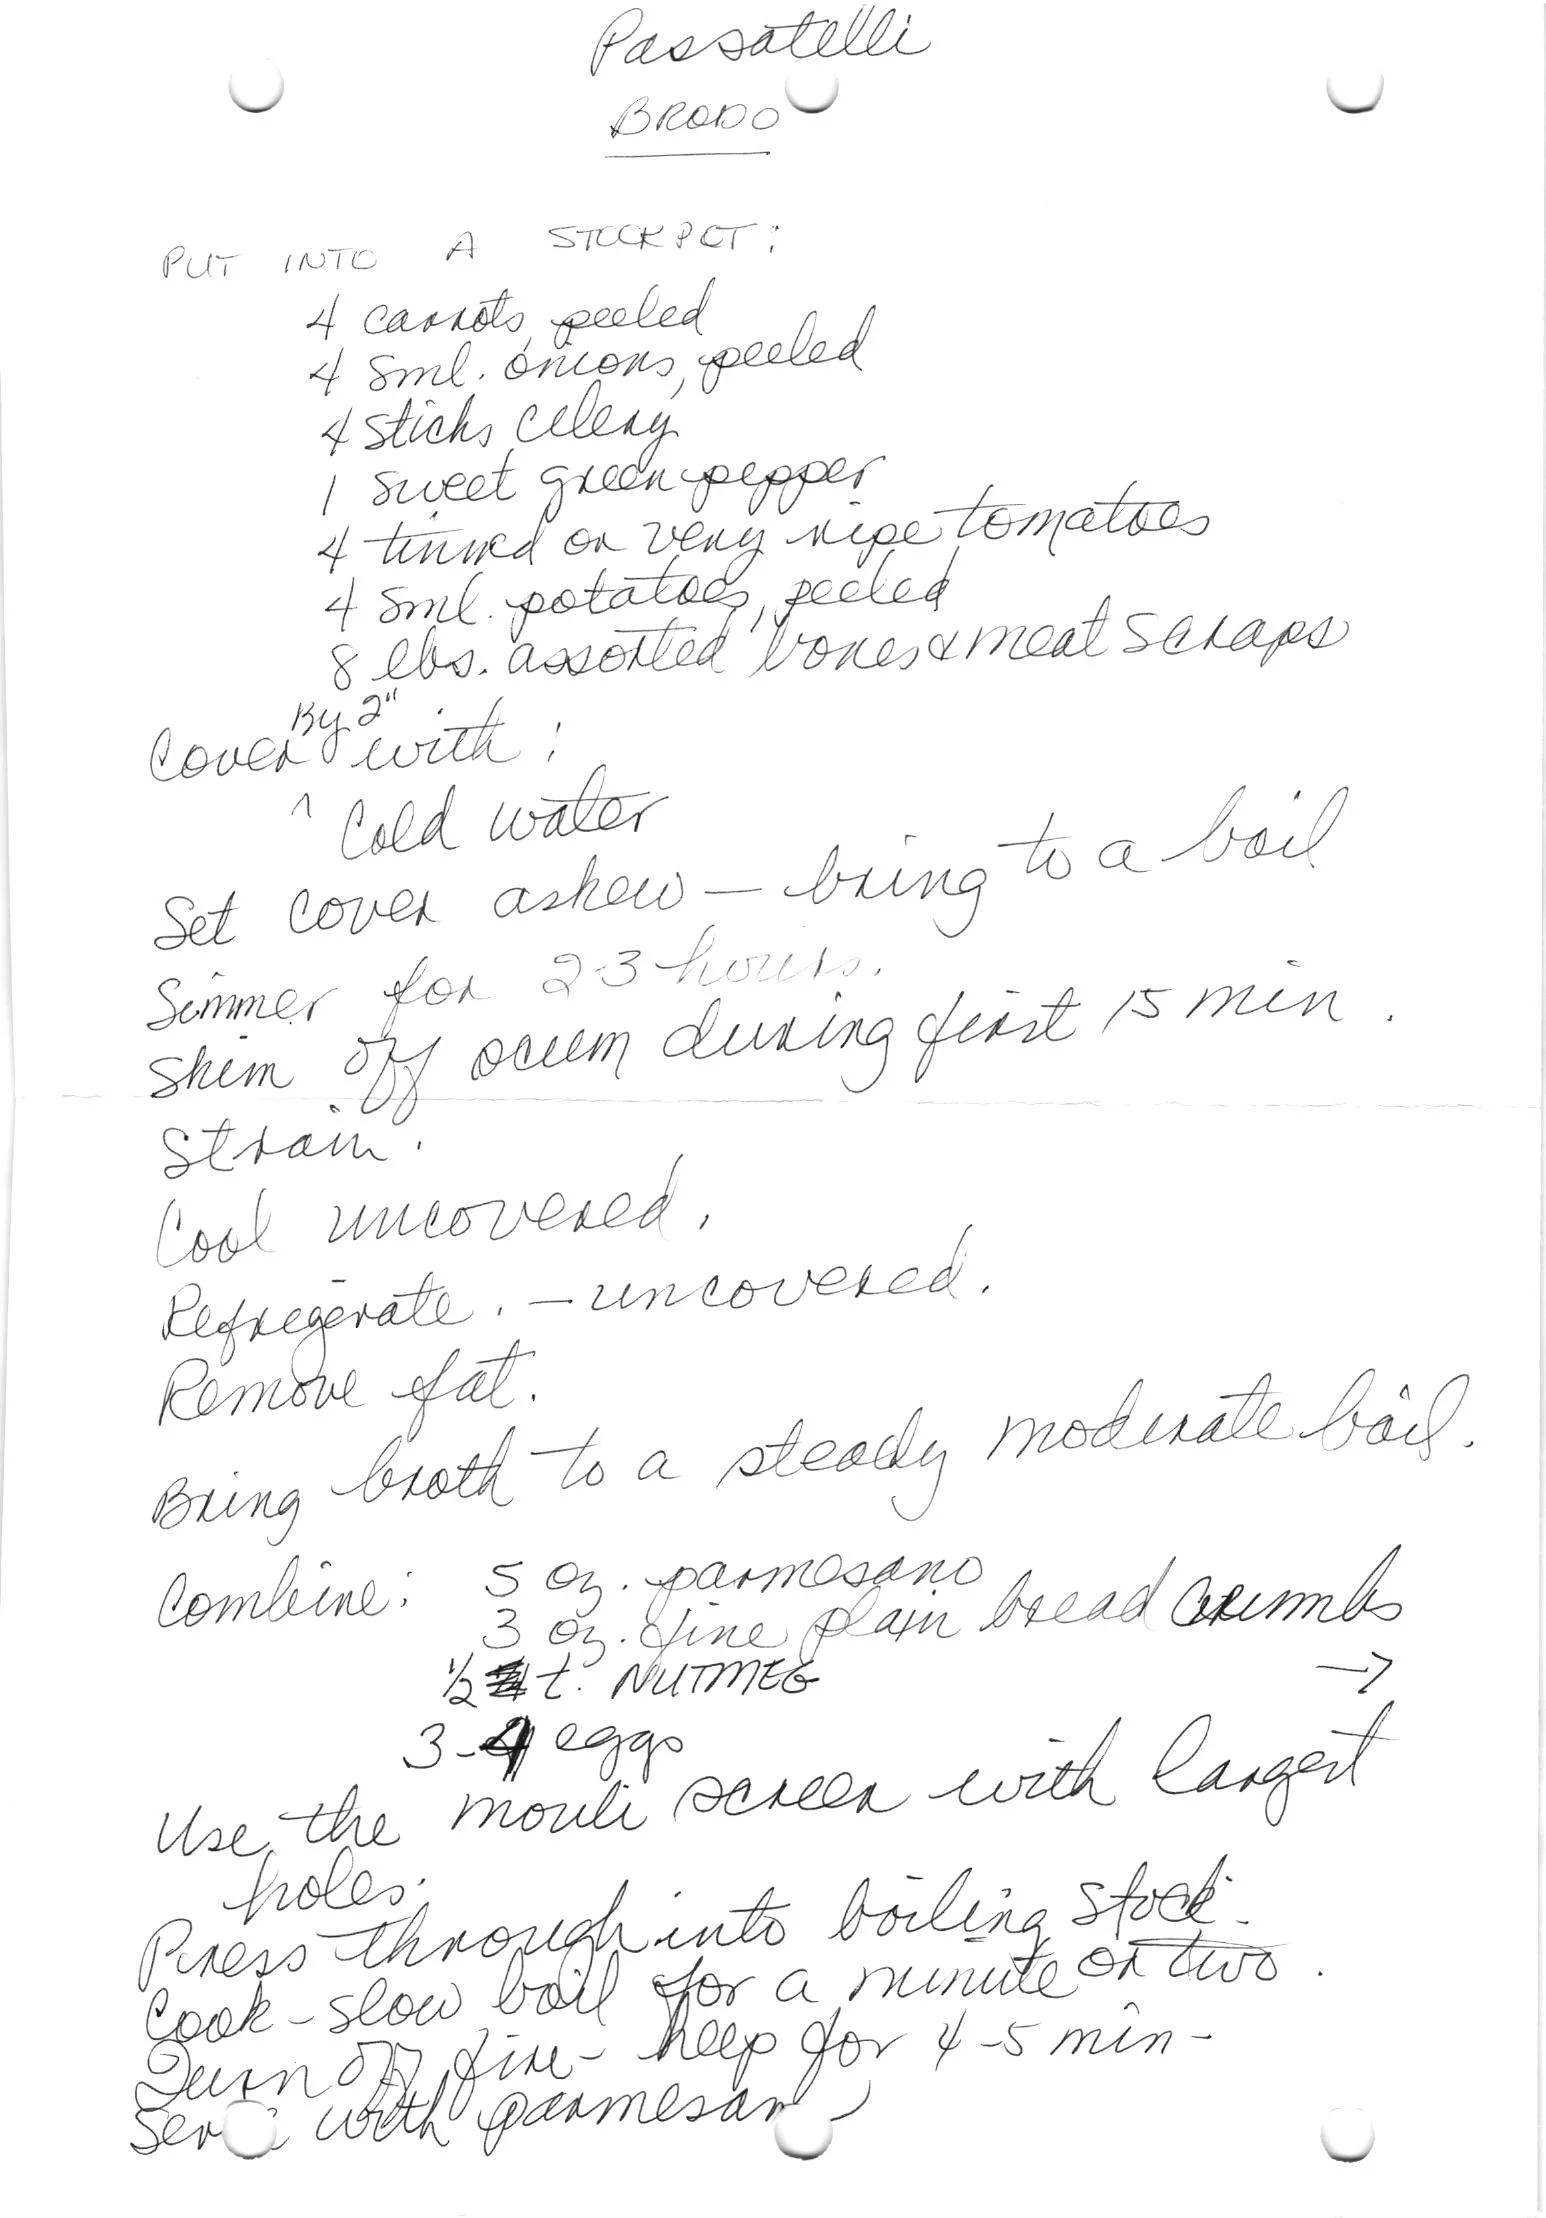 Passatelli
BRODO
PUT INTO A STOCKPOT:
4 carrots, peeled
4 sml. onions, peeled
4 sticks celery
1 sweet green pepper
4 tinned or very ripe tomatoes
4 sml. potatoes, peeled
8 lbs. assorted bones & meat scraps
By 2"
Cover ^ with:
Cold water
Set cover askew — bring to a boil
Simmer for 2-3 hours.
Skim off scum during first 15 min.
Strain.
Cool uncovered.
Refrigerate. — uncovered.
Remove fat.
Bring broth to a steady moderate boil.
Combine: 5 oz. parmesano
3 oz. fine plain bread crumbs
1/2 t. NUTMEG →
3-4 eggs
Use the mouli screen with largest
holes.
Press through into boiling stock.
Cook - slow boil for a minute or two.
Turn off fire - keep for 4-5 min -
Serve with parmesan